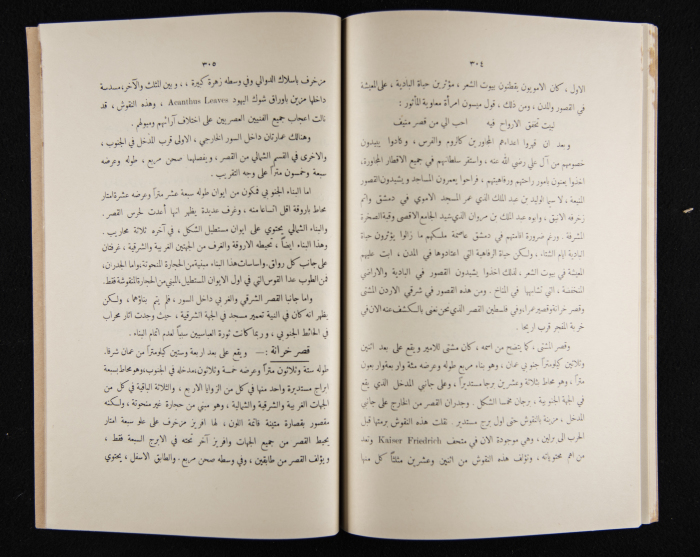 ٣٠٤
الاول، كان الامويون يقطنون بيوت الشعر، مؤثرين حياة البادية، على المعيشة
في القصور والمدن، ومن ذلك، قول ميسون امرأة معاوية المأثور :
لبيت تخفق الارواح فيه احب الي من قصر منيف
وبعد ان قهروا اعداءهم المجاورين كالروم والفرس، وكادوا يبيدون
خصومهم من آل علي رضي الله عنه، واستقر سلطانهم في جميع الاقطار المجاورة،
اخذوا يعنون بامور راحتهم ورفاهيتهم، فراحوا يعمرون المساجد ويشيدون القصور
المنيعة، لا سيما الوليد بن عبد الملك الذي عمر المسجد الاموي في دمشق واتم
زخرفه الانيق، وابوه عبد الملك بن مروان الذي شيد الجامع الاقصى وقبة الصخرة
المشرفة. ورغم ضرورة اقامتهم في دمشق عاصمة ملكهم ما زالوا يؤثرون حياة
البادية ايام الشتاء، ولكن حياة الرفاهية التي اعتادوها في المدن، ابت عليهم
المعيشة في بيوت الشعر، لذلك اخذوا يشيدون القصور في البادية والاراضي
المنخفضة، التي تشابهها في المناخ. ومن هذه القصور في شرقي الاردن المشتى
وقصر خرانة وقصير عمرا، وفي فلسطين القصر الذي نحن نعنى بالكشف عنه الان في
خربة المفجر قرب اريحا.
وقصر المشتى، كما يتضح من اسمه، كان مشتى للامير ويقع على بعد اثنين
وثلاثين كيلومتراً جنوبي عمان، وهو بناء مربع طوله وعرضه مئة واربعة واربعون
متراً، وهو محاط بثلاثة وعشرين برجاً مستديراً، وعلى جانبي المدخل الذي يقع
في الجهة الجنوبية، برجان مخمسا الشكل. وجدران القصر من الخارج على جانبي
المدخل، مزينة بالنقوش حتى اول برج مستدير. نقلت هذه النقوش برمتها قبل
الحرب الى برلين، وهي موجودة الان في متحف Kaiser Friedrich وتعد
من اهم محتوياته، وتؤلف هذه النقوش من اثنين وعشرين مثلثاً كل منها
٣٠٥
مزخرف باسلاك الدوالي وفي وسطه زهرة كبيرة،، وبين المثلث والآخر، مسدسة
داخلها مزين باوراق شوك اليهود Acanthus Leaves، وهذه النقوش، قد
نالت اعجاب جميع الفنيين العصريين على اختلاف آرائهم وميولهم.
وهنالك عمارتان داخل السور الخارجي، الاولى قرب المدخل في الجنوب،
والاخرى في القسم الشمالي من القصر، ويفصلهما صحن مربع، طوله وعرضه
سبعة وخمسون متراً على وجه التقريب.
اما البناء الجنوبي فمكون من ايوان طوله سبعة عشر متراً وعرضه عشرة امتار
محاط باروقة اقل اتساعا منه، وغرف عديدة يظهر انها أعدت لحرس القصر.
والبناء الشمالي يحتوي على ايوان مستطيل الشكل، في آخره ثلاثة محاريب.
وهذا البناء ايضاً، تحيطه الاروقة والغرف من الجهتين الغربية والشرقية، غرفتان
على جانب كل رواق. واساسات هذا البناء مبنية من الحجارة المنحوتة، واما الجدران،
فمن الطوب عدا القوس التي في اول الايوان المستطيل، المبني من الحجارة المنقوشة فقط.
واما جانبا القصر الشرقي والغربي داخل السور، فلم يتم بناؤهما، ولكن
يظهر انه كان في النية تعمير مسجد في الجهة الشرقية، حيث وجدت اثار محراب
في الحائط الجنوبي، وربما كانت ثورة العباسيين سبباً لعدم اتمام البناء.
قصر خرانة :— ويقع على بعد اربعة وستين كيلومتراً من عمان شرقا.
طوله ستة وثلاثون متراً وعرضه خمسة وثلاثون، مدخله في الجنوب، وهو محاط بسبعة
ابراج مستديرة واحد منها في كل من الزوايا الاربع، والثلاثة الباقية في كل من
الجهات الغربية والشرقية والشمالية، وهو مبني من حجارة غير منحوتة، ولكنه
مقصور بقصارة متينة قائمة اللون، لها افريز مزخرف على علو سبعة امتار
يحيط القصر من جميع الجهات وافريز آخر تحته في الابرج السبعة فقط،
ويؤلف القصر من طابقين، وفي وسطه صحن مربع. والطابق الاسفل، يحتوي